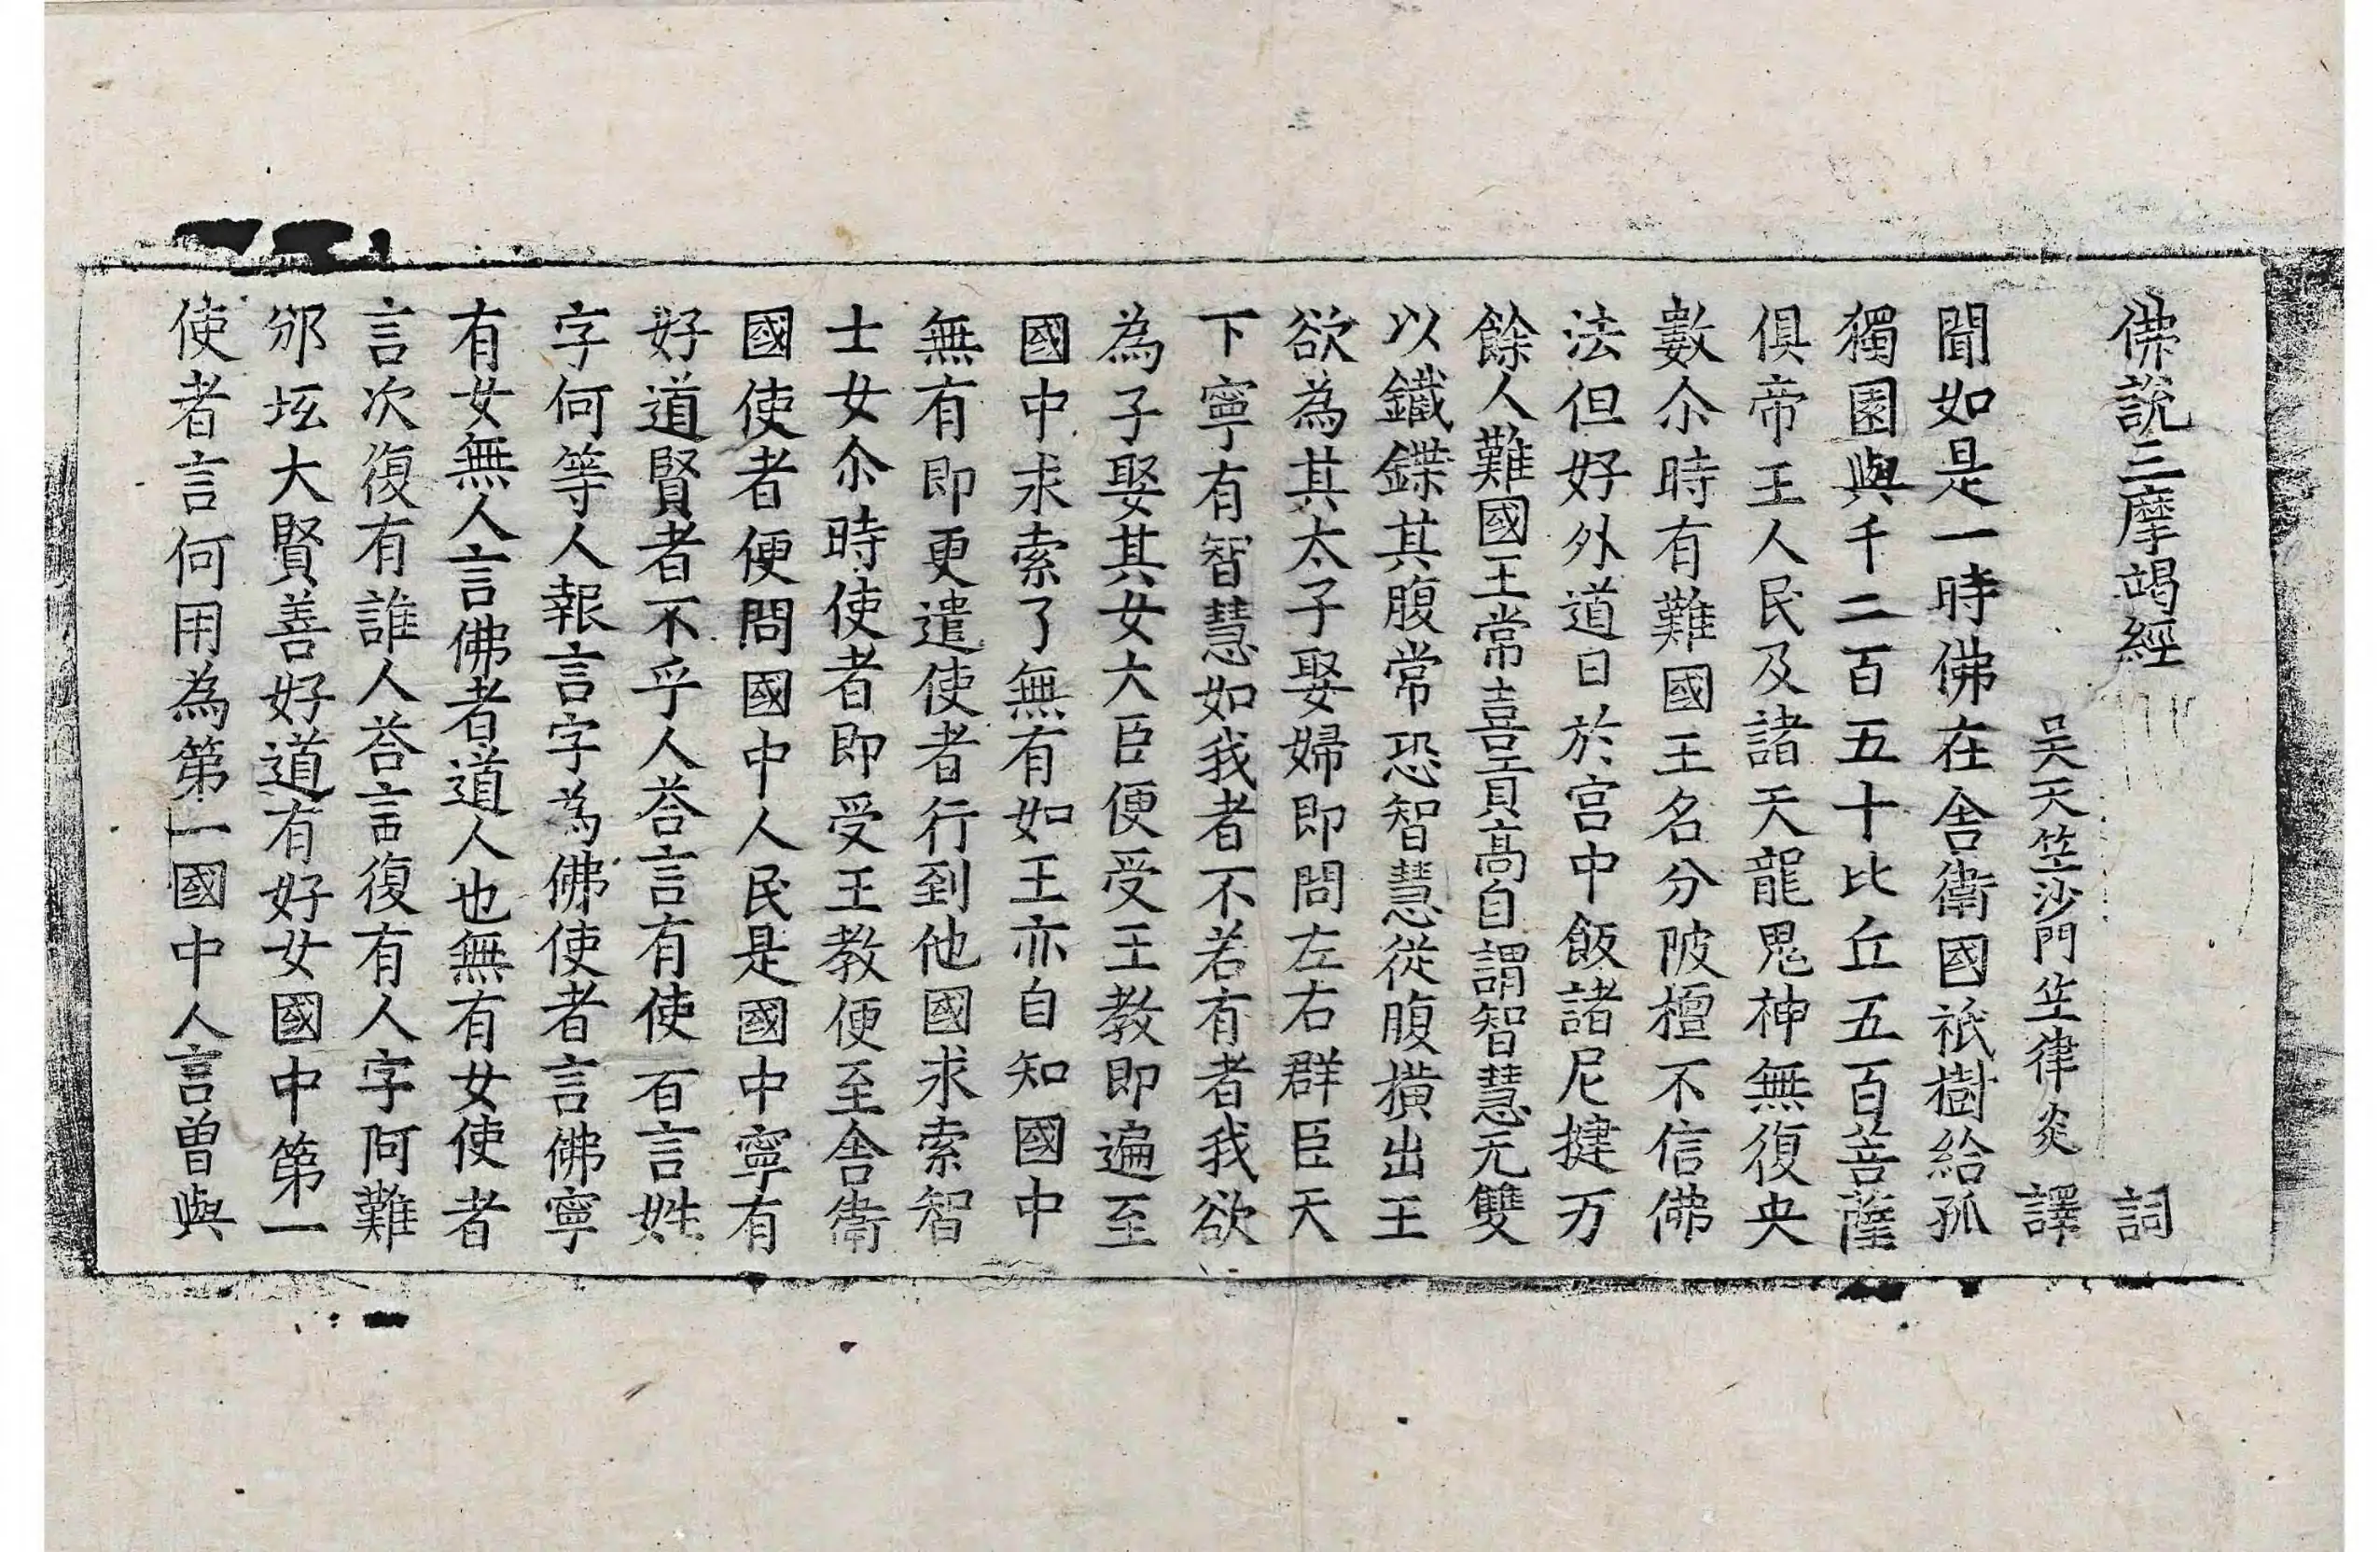 佛說三摩竭經 詞
吳天竺沙門竺律炎 譯
聞如是一時佛在舍衛國祇樹給孤
獨園與千二百五十比丘五百菩薩
俱帝王人民及諸天龍鬼神無復央
數尒時有難國王名分陂檀不信佛
法但好外道日於宮中飯諸尼揵万
餘人難國王常喜貢高自謂智慧无雙
以鐵鍱其腹常恐智慧從腹橫出王
欲為其太子娶婦即問左右群臣天
下寧有智慧如我者不若有者我欲
為子娶其女大臣便受王教即遍至
國中求索了無有如王亦自知國中
無有即更遣使者行到他國求索智
士女尒時使者即受王教便至舍衛
國使者便問國中人民是國中寧有
好道賢者不乎人荅言有使者言姓
字何等人報言字為佛使者言佛寧
有女無人言佛者道人也無有女使者
言次復有誰人荅言復有人字阿難
邠坻大賢善好道有好女國中第一
使者言何用為第一國中人言曾與